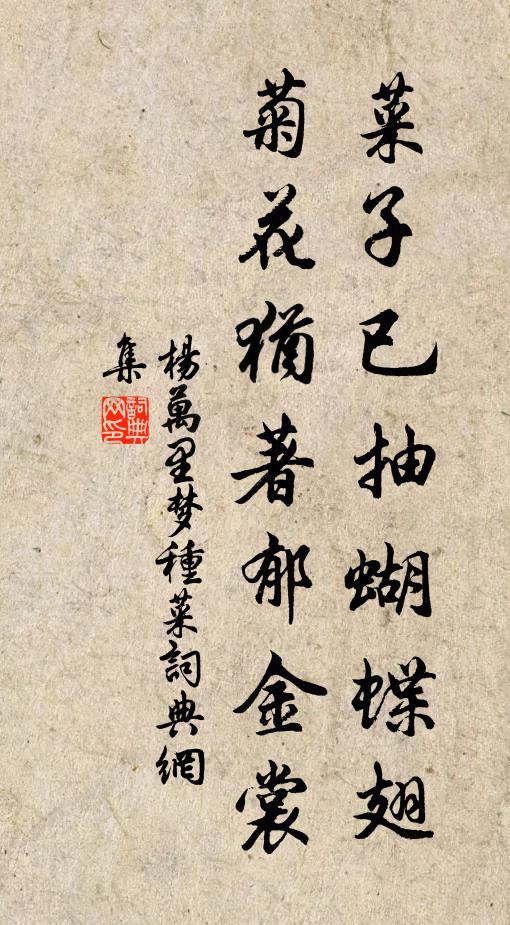 菜子已抽蝴蝶翅
菊花猶著郁金裳
楊萬里梦種菜詞典網
集
詞典
网印